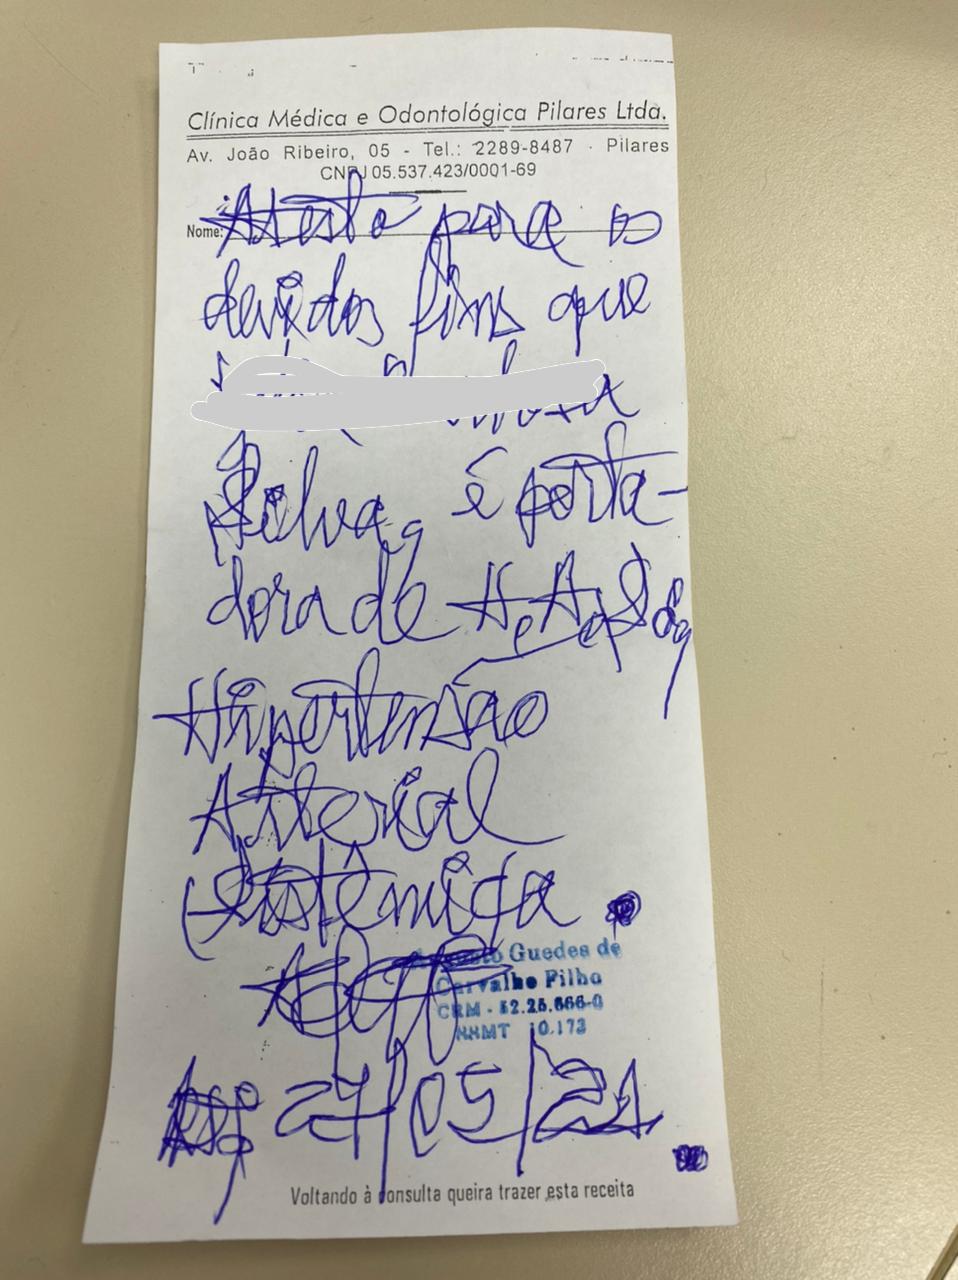 Clínica Médica e Odontológica Pilares Ltda.
Av. João Ribeiro, 05 - Tel.: 2289-8487 - Pilares
CNPJ 05.537.423/0001-69
Nome: Atesto para os
devidos fins que
Silva, é porta-
dora de H.A.S.,
Hipertensão
Arterial
Sistêmica.
Augusto Guedes de
Carvalho Filho
CRM - 52.25.666-0
27/05/21
Voltando à consulta queira trazer esta receita